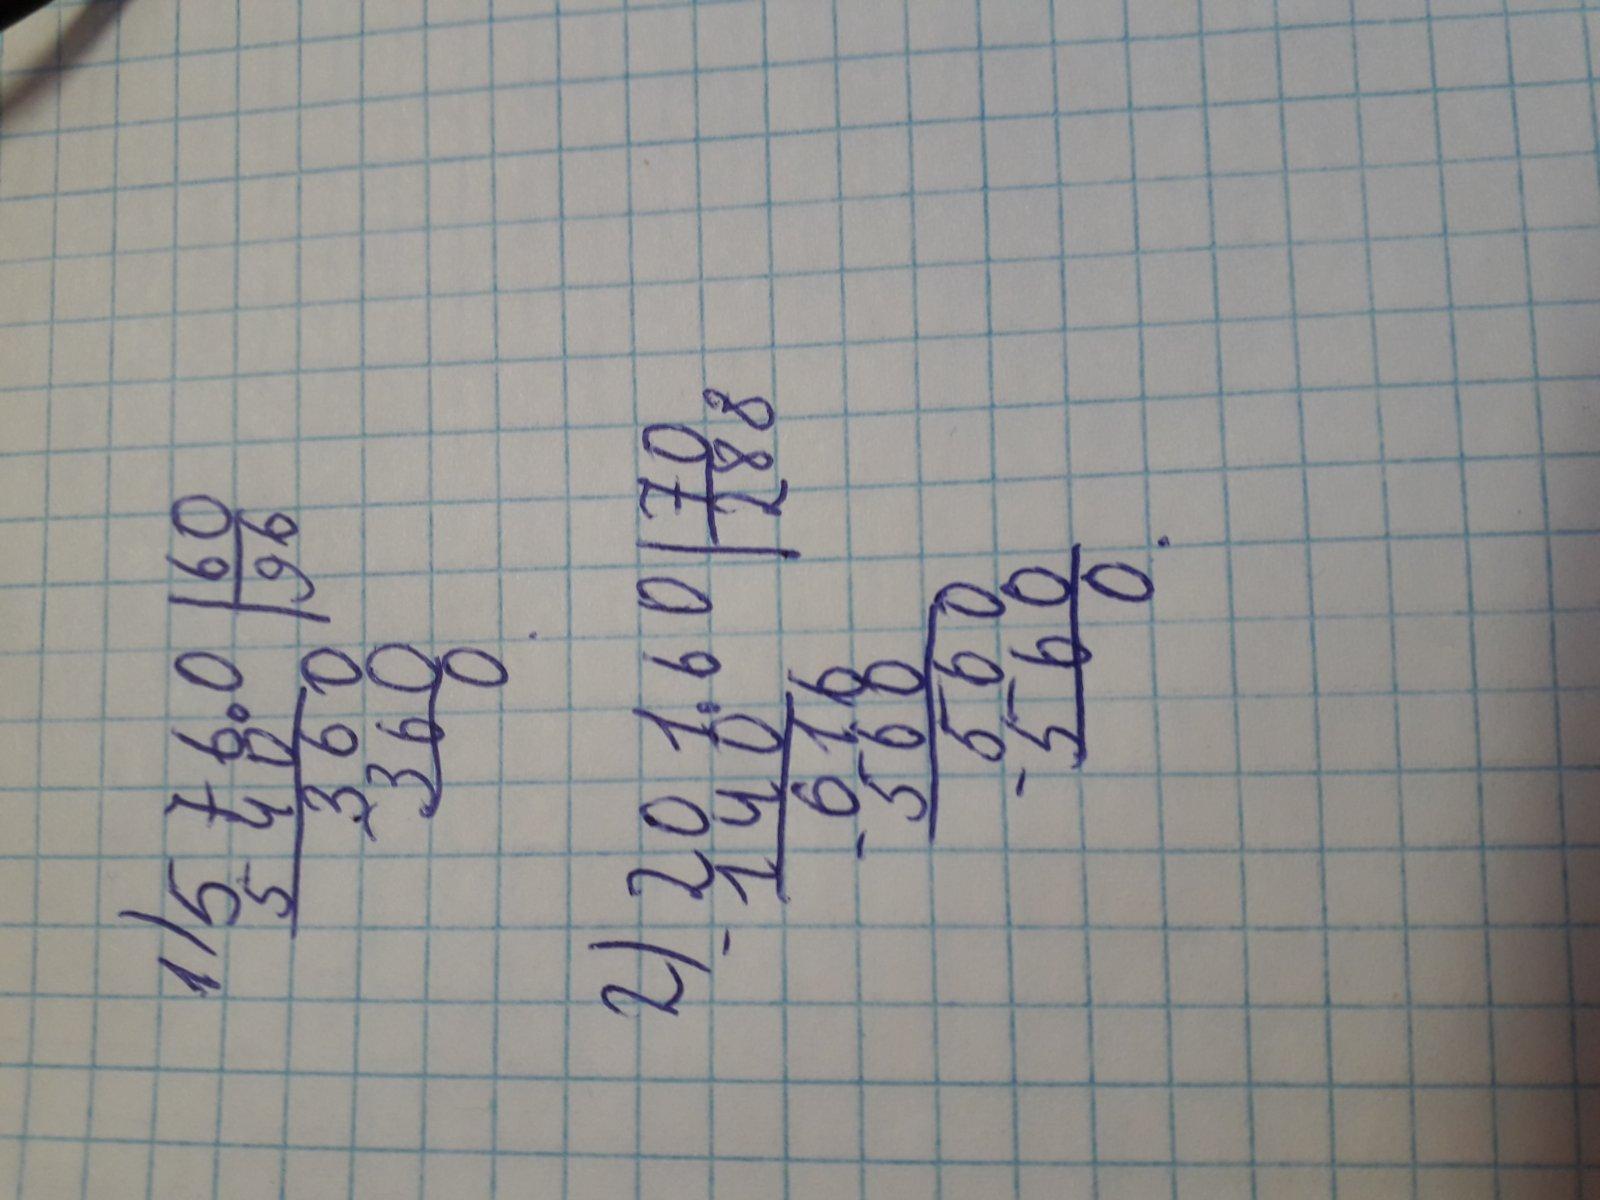 1) 576.0 | 60
540 | 96
- 360
360
0
2) 201.60 | 70
- 140 | 288
- 616
560
560
- 560
0